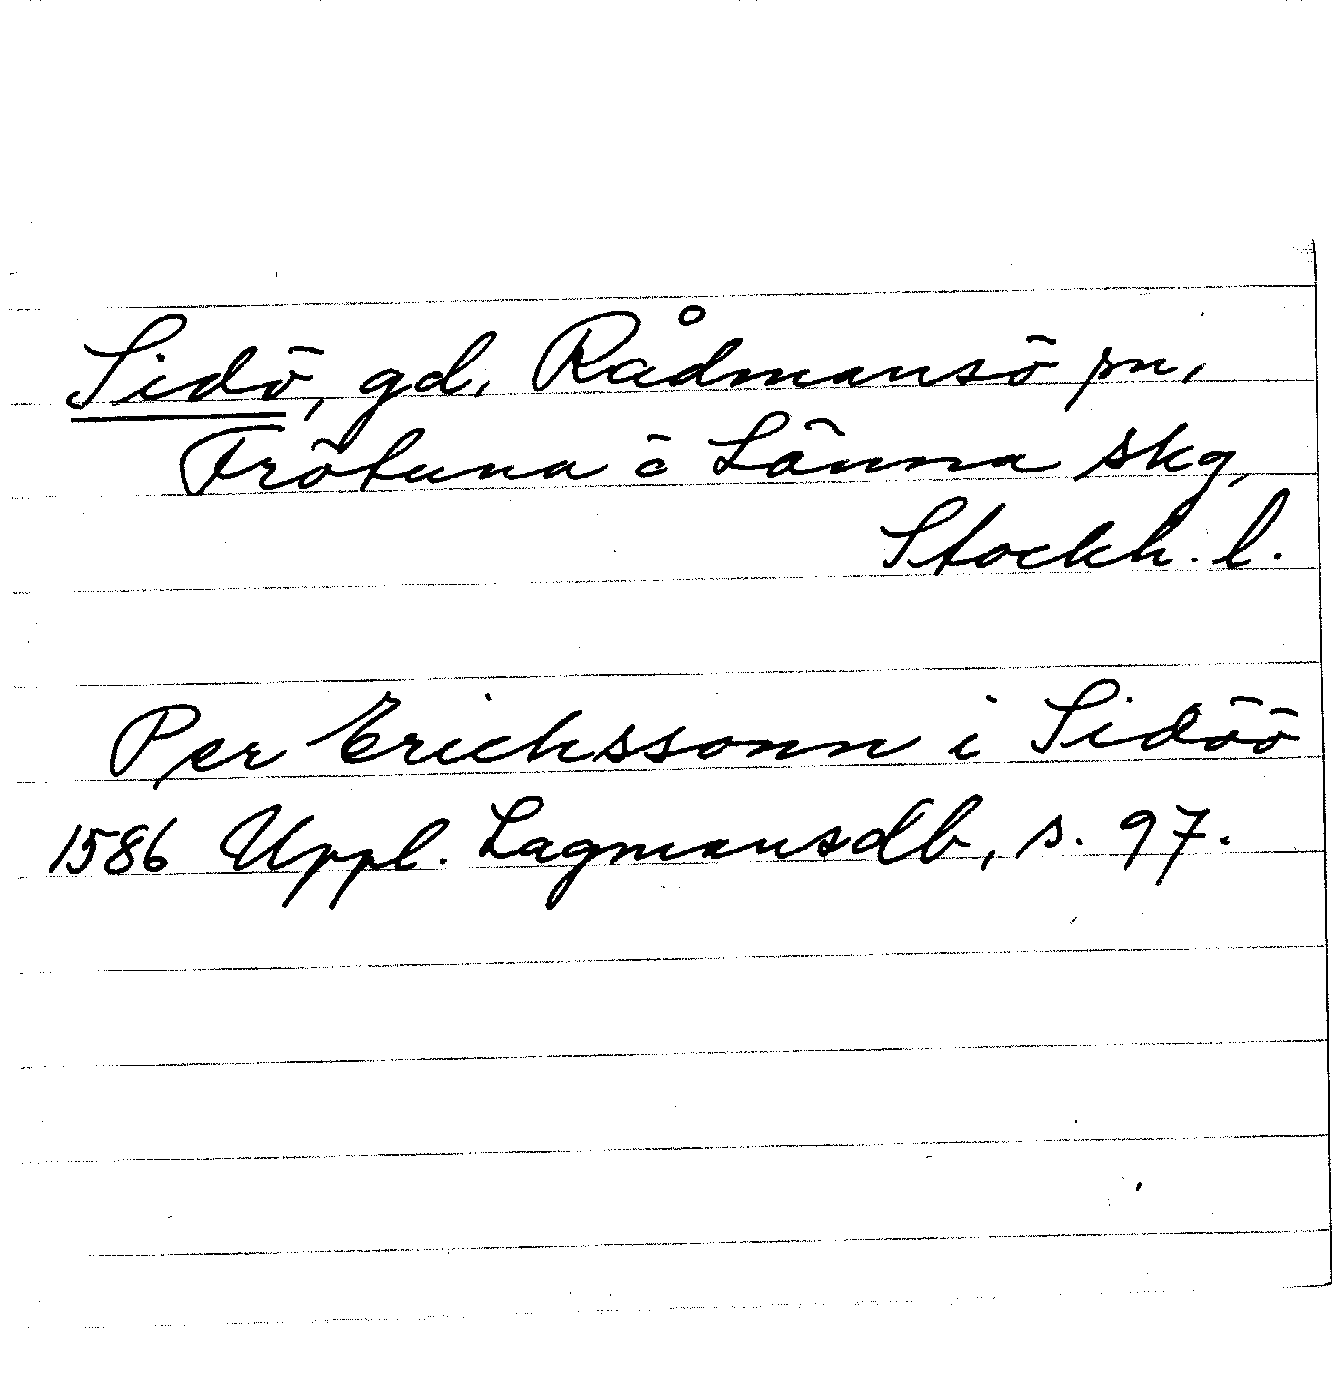 Sidö, gd, Rådmansö sn,
Frötuna o Länna skg,
Stockh. l.
Per Erichssonn i Sidöö
1586 Uppl. Lagmansdb, s. 97.